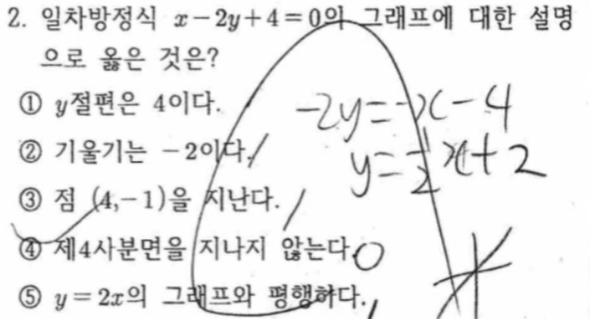 2. 일차방정식 x-2y+4=0의 그래프에 대한 설명
으로 옳은 것은?
① y절편은 4이다.
② 기울기는 -2이다.
③ 점 (4,-1)을 지난다.
④ 제4사분면을 지나지 않는다.
⑤ y=2x의 그래프와 평행하다.
-2y=-x-4
y=1/2x+2